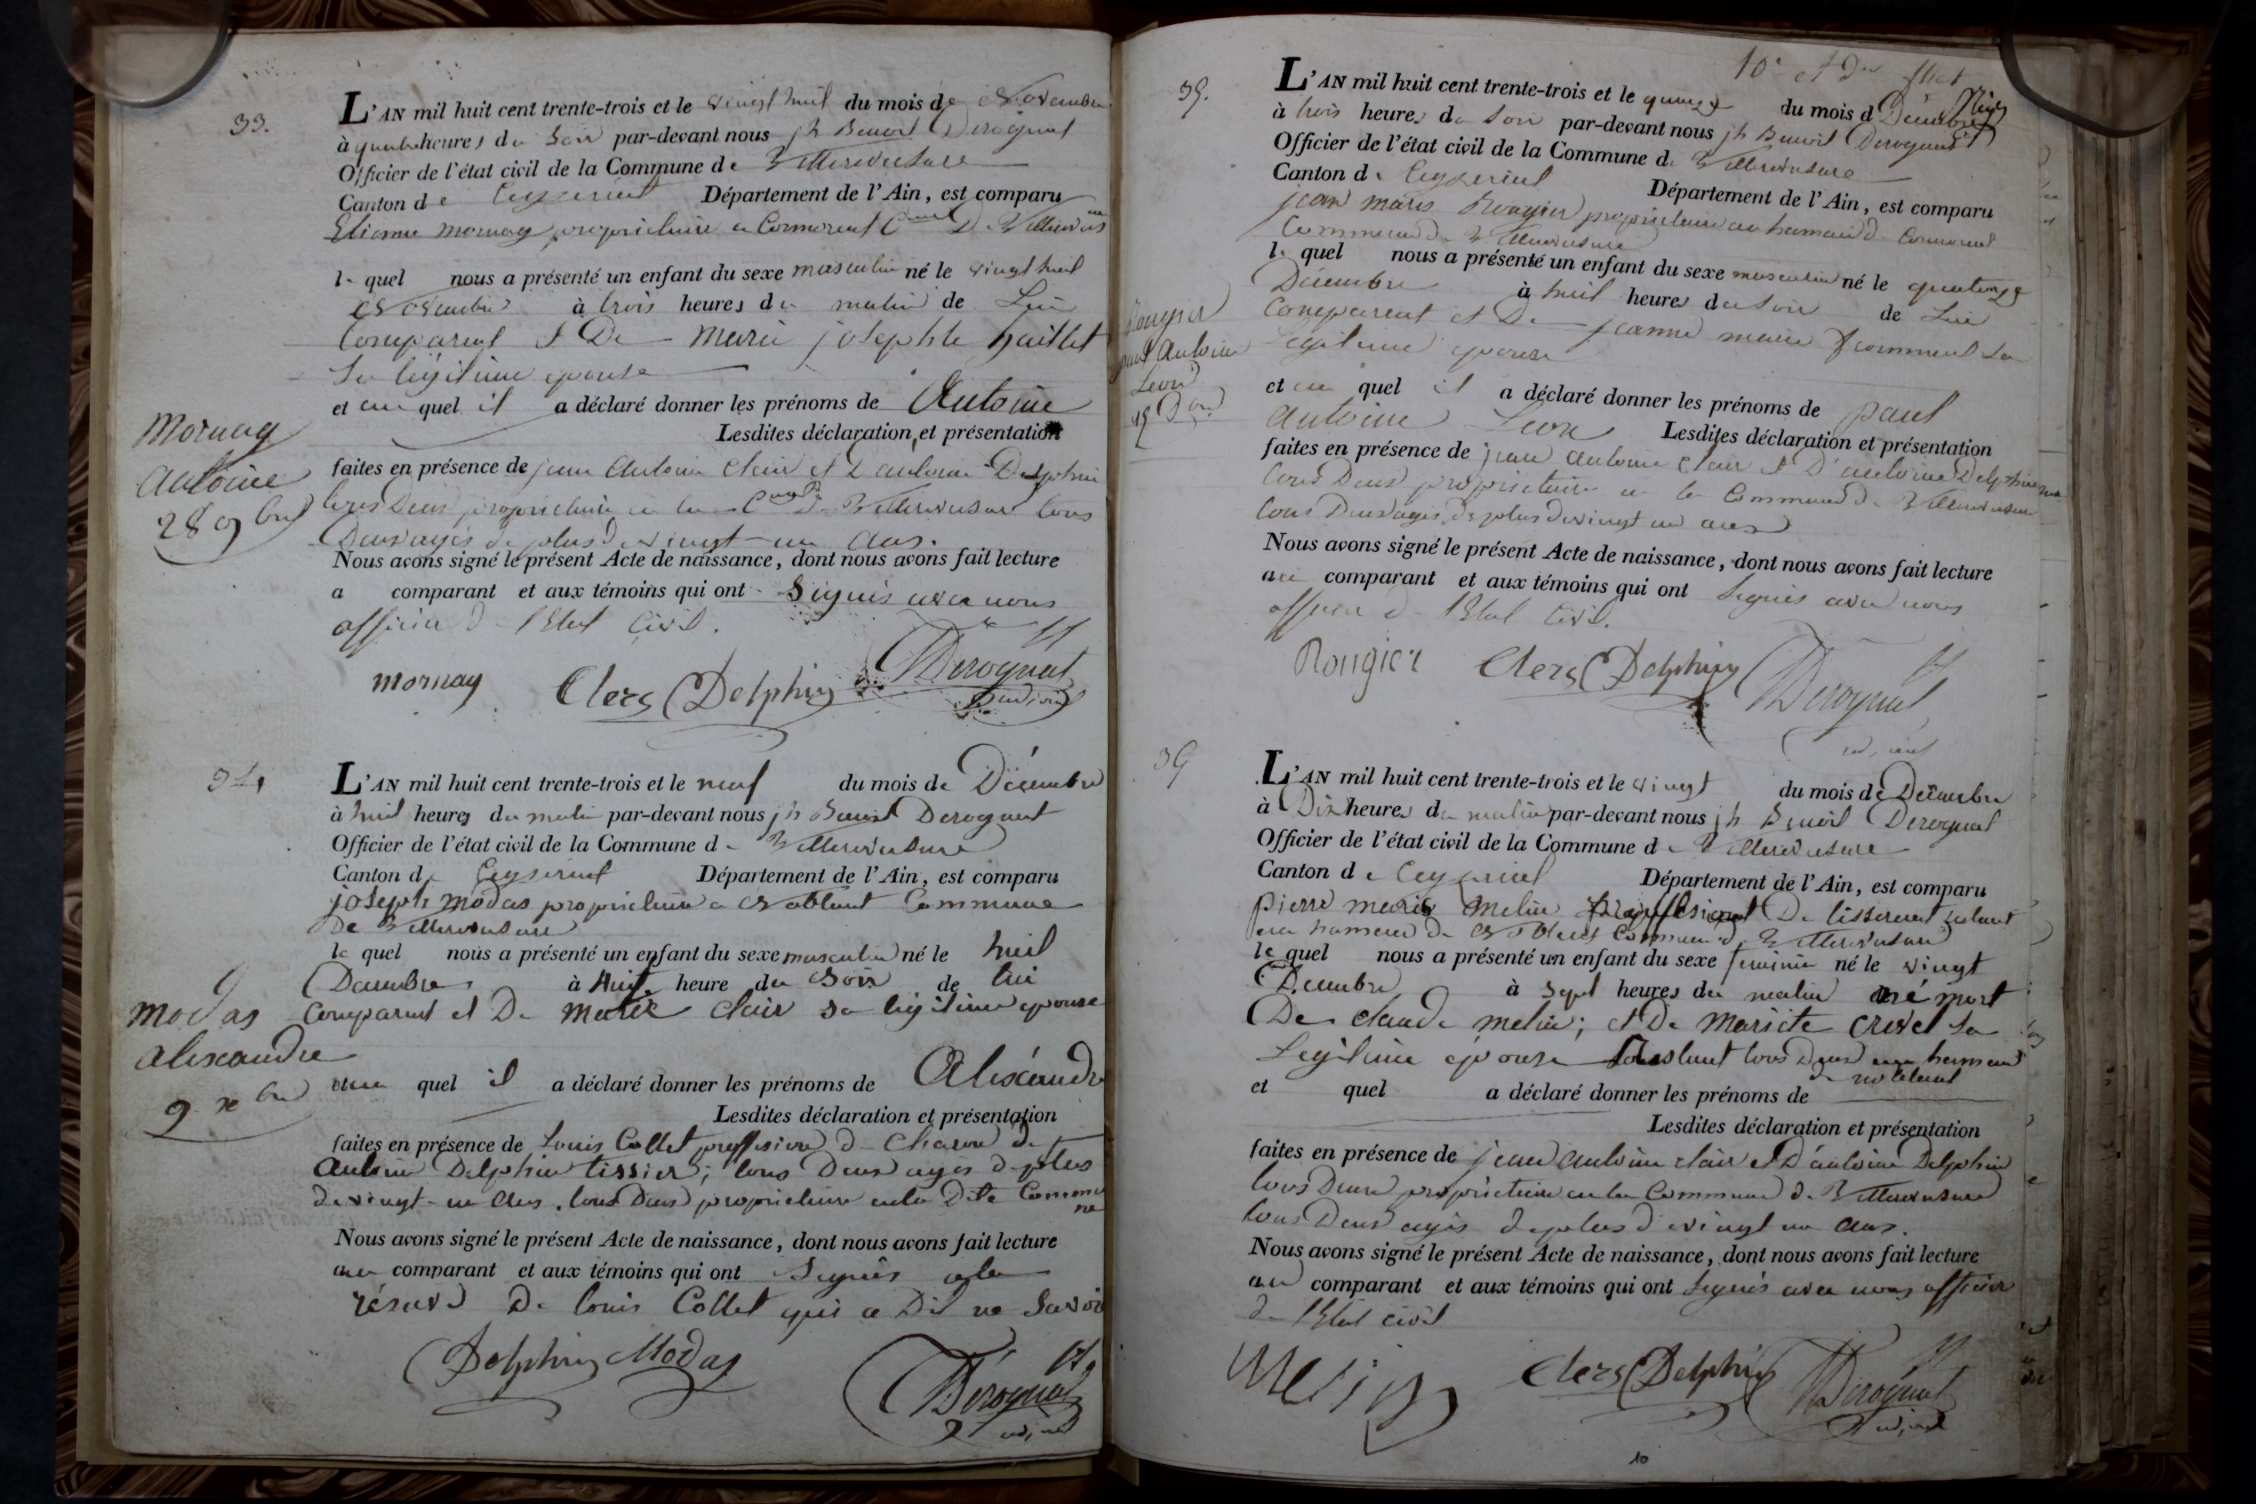 33.
L'AN mil huit cent trente-trois et le vingt huit du mois de Novembre
à quatre heures du soir par-devant nous jh Benoit Derognat
Officier de l'état civil de la Commune de Villereversure
Canton de Ceyzeriat Département de l'Ain, est comparu
Etienne mornay propriétaire a Cormorent Cune De
le quel nous a présenté un enfant du sexe masculin né le vingt huit
Novembre à trois heures du matin de Lui
Comparant et De marie josephte haillet
Sa légitime epouse
et au quel il a déclaré donner les prénoms de Antoine
Lesdites déclaration et présentation
faites en présence de jean Antoine Clair et D'antoine Delphin
tous Deux propriétaire en la Cune De Villereversure tous
Deux agés de plus de vingt-un ans.
Nous avons signé le présent Acte de naissance, dont nous avons fait lecture
a comparant et aux témoins qui ont Signés avec nous
officier de l'Etat Civil.
mornay Clers Delphin Derognat
adjoint
Mornay
Antoine
28 9bre
34
L'AN mil huit cent trente-trois et le neuf du mois de Décembre
à huit heures du matin par-devant nous jh Benoit Derognat
Officier de l'état civil de la Commune de Villereversure
Canton de Ceyzeriat Département de l'Ain, est comparu
joseph modas propriétaire a Noblant Commune
De Villereversure
le quel nous a présenté un enfant du sexe masculin né le huit
Décembre à huit heure du Soir de lui
Comparant et De marie Clair sa légitime epouse
au quel il a déclaré donner les prénoms de Alexandre
Lesdites déclaration et présentation
faites en présence de Louis Collet proffesion de Charon et
Antoine Delphin tissier; tous Deux agés de plus
de vingt-un Ans. tous Deux propriétaire en la Dite Commune
Nous avons signé le présent Acte de naissance, dont nous avons fait lecture
au comparant et aux témoins qui ont Signés a la
réserve De louis Collet qui a Dit ne Savoir
Delphin Modas Derognat
adjoint
modas
alexandre
9 xbre
35.
L'AN mil huit cent trente-trois et le quinze du mois de Décembre
à trois heures du Soir par-devant nous jh Benoit Derognat
Officier de l'état civil de la Commune de Villereversure
Canton de Ceyzeriat Département de l'Ain, est comparu
jean marie Rougier propriétaire au hameau de Cormorent
Commune de Villereversure
le quel nous a présenté un enfant du sexe masculin né le quatorze
Décembre à huit heures du Soir de Lui
Comparant et De jeanne marie Sa
légitime epouse
et au quel il a déclaré donner les prénoms de paul
Antoine Leon Lesdites déclaration et présentation
faites en présence de jean antoine Clair et D'antoine Delphin
tous Deux propriétaire en la Commune De Villereversure
tous Deux agés de plus de vingt un ans
Nous avons signé le présent Acte de naissance, dont nous avons fait lecture
au comparant et aux témoins qui ont Signés avec nous
officier de l'Etat Civil.
Rougier Clers Delphin Derognat
adjoint
Rougier
paul Antoine
Leon
L'AN mil huit cent trente-trois et le vingt du mois de Décembre
à Dix heures du matin par-devant nous jh Benoit Derognat
Officier de l'état civil de la Commune de Villereversure
Canton de Ceyzeriat Département de l'Ain, est comparu
pierre marie melin De tisserent
au hameau de Noblant Commune de Villereversure
le quel nous a présenté un enfant du sexe feminin né le vingt
Décembre à Sept heures du matin né mort
De claude melin; et De mariete Crevel Sa
Legitime épouse tous Deux au hameau
de noblant
et quel a déclaré donner les prénoms de
Lesdites déclaration et présentation
faites en présence de jean antoine clair et D'antoine Delphin
tous Deux propriétaire en la Commune de Villereversure
tous Deux agés de plus de vingt un ans.
Nous avons signé le présent Acte de naissance, dont nous avons fait lecture
au comparant et aux témoins qui ont Signés avec nous officier
de l'Etat civil
Melin Clers Delphin Derognat
adjoint
10